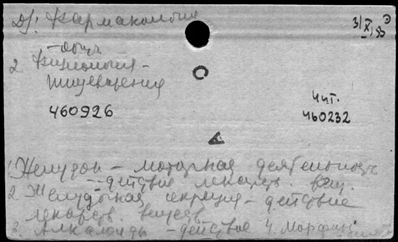 Фармакология
31/XI 50
2 Физиология -
пищеварения
460926
Чит.
460232
1 Желудок - моторная деятельность
- действие лекарств. вещ.
2 Желудочная секреция - действие
лекарств. веществ
2 Алкалоиды - действие